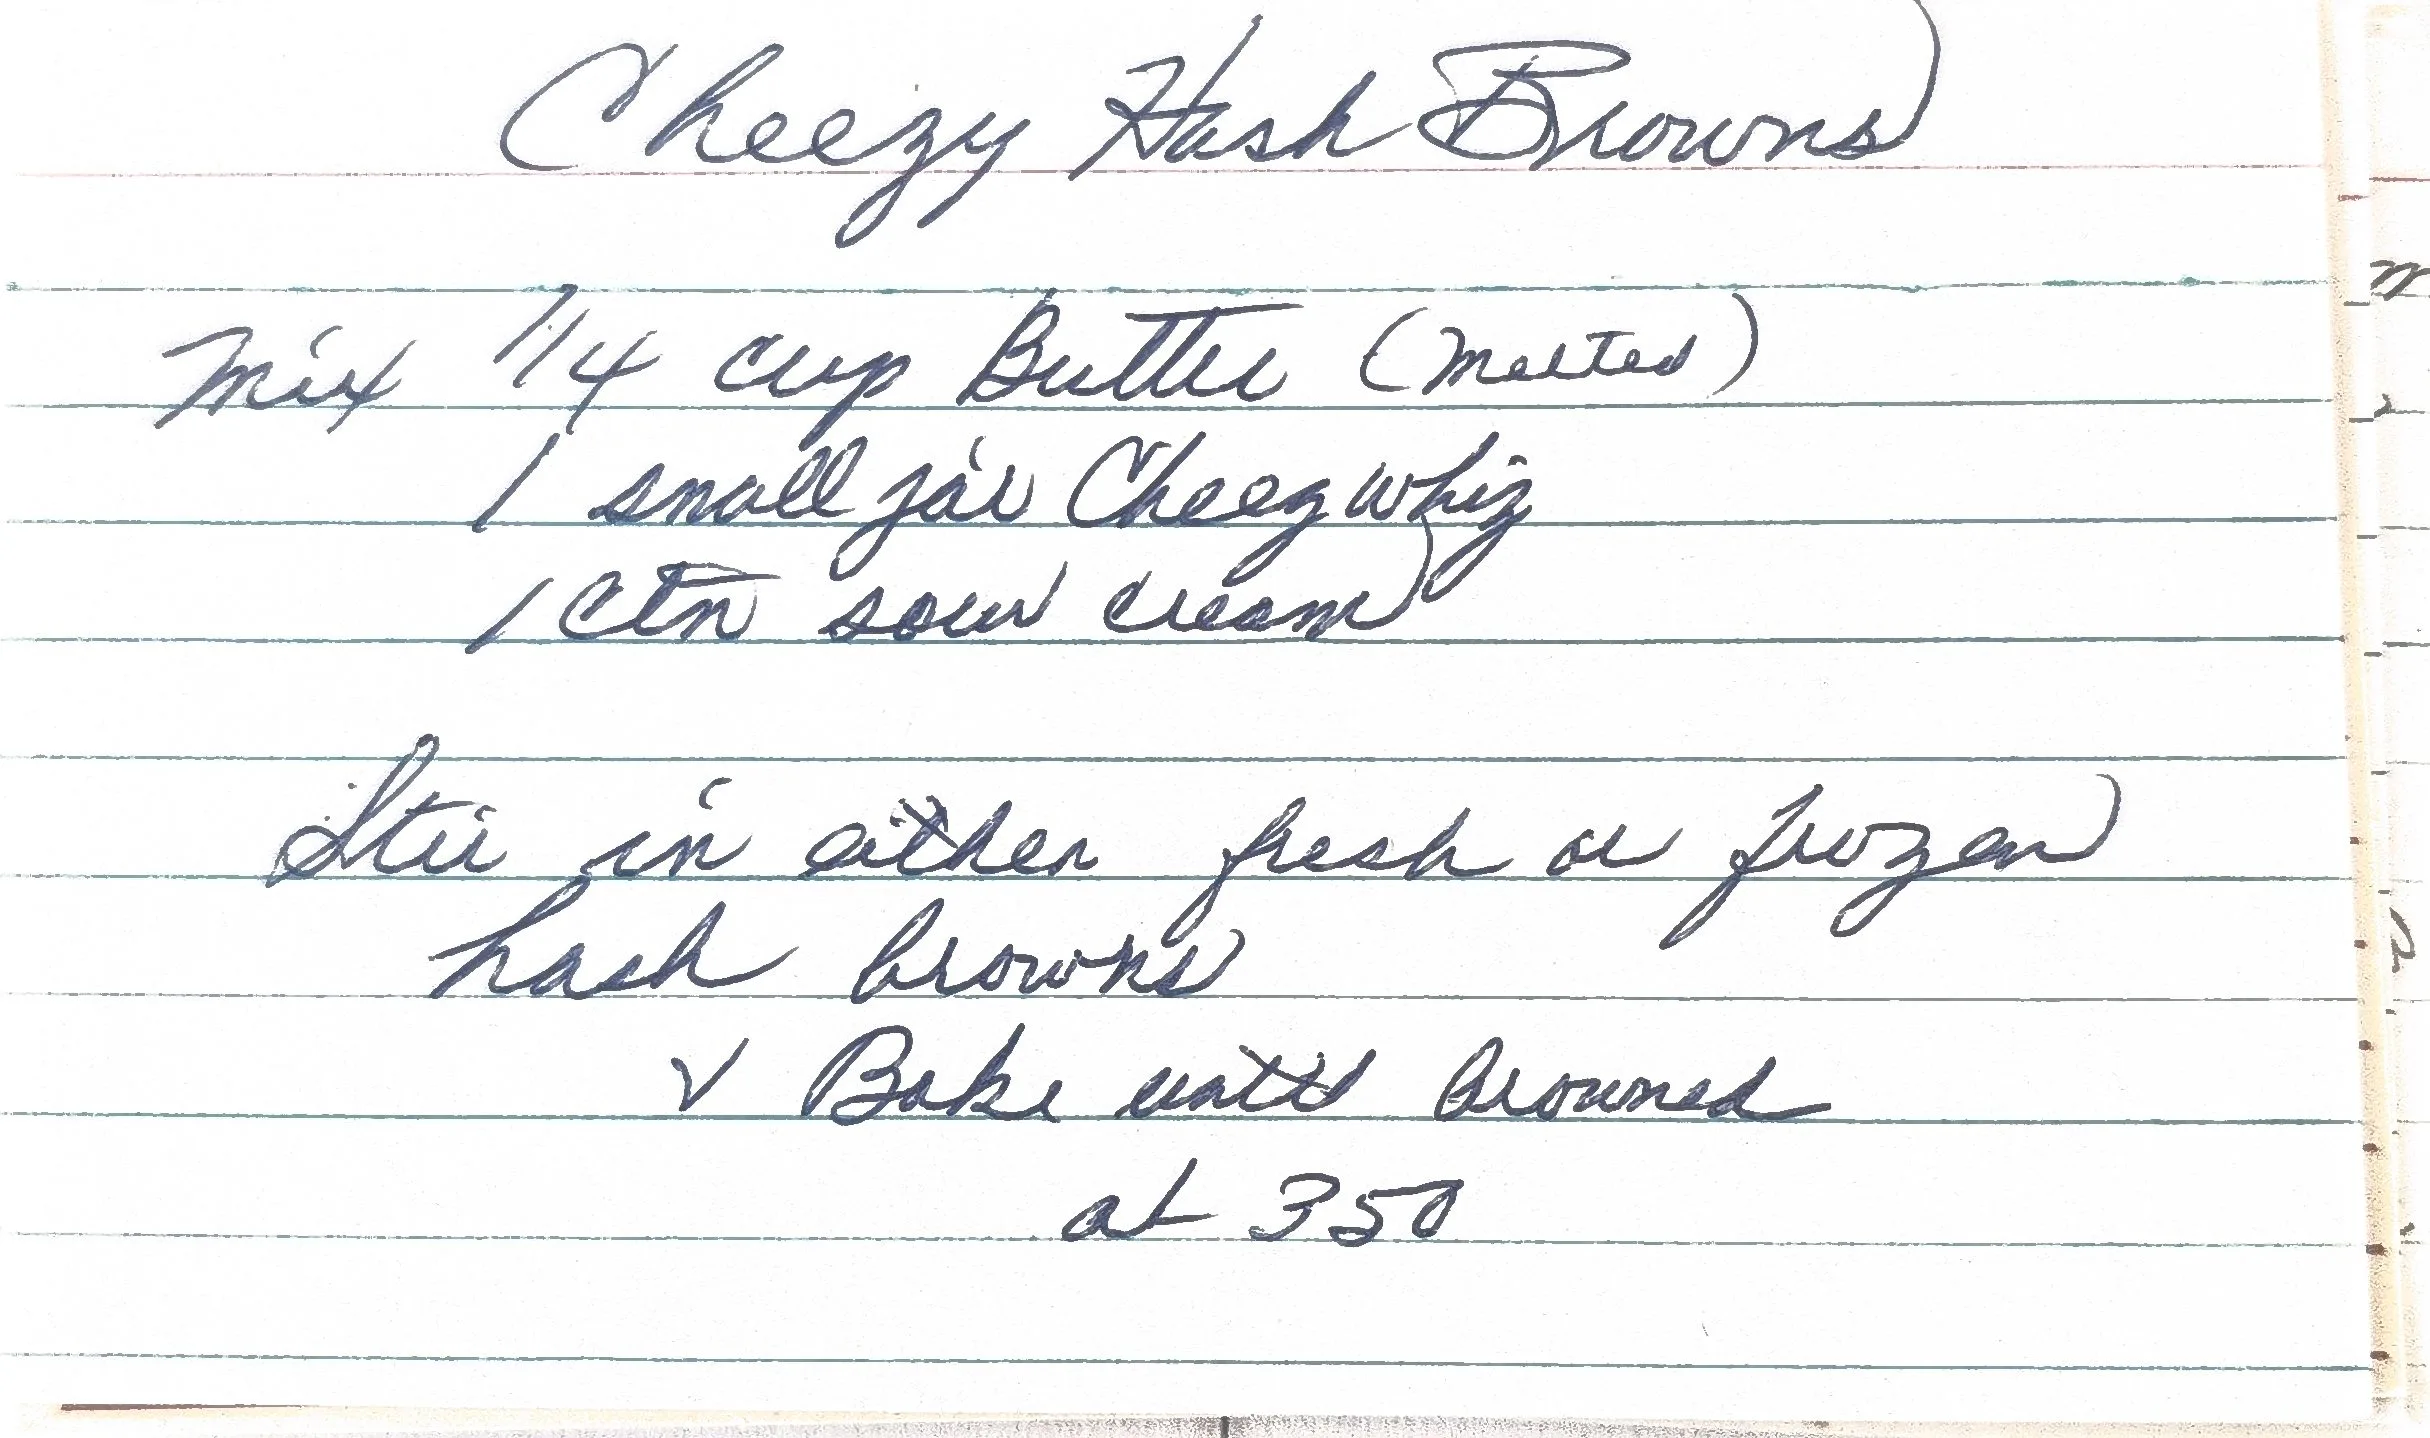 Cheezy Hash Browns
Mix 1/4 cup Butter (melted)
1 small jar Cheez whiz
1 ctn sour cream
Stir in either fresh or frozen
hash browns
& Bake until browned
at 350